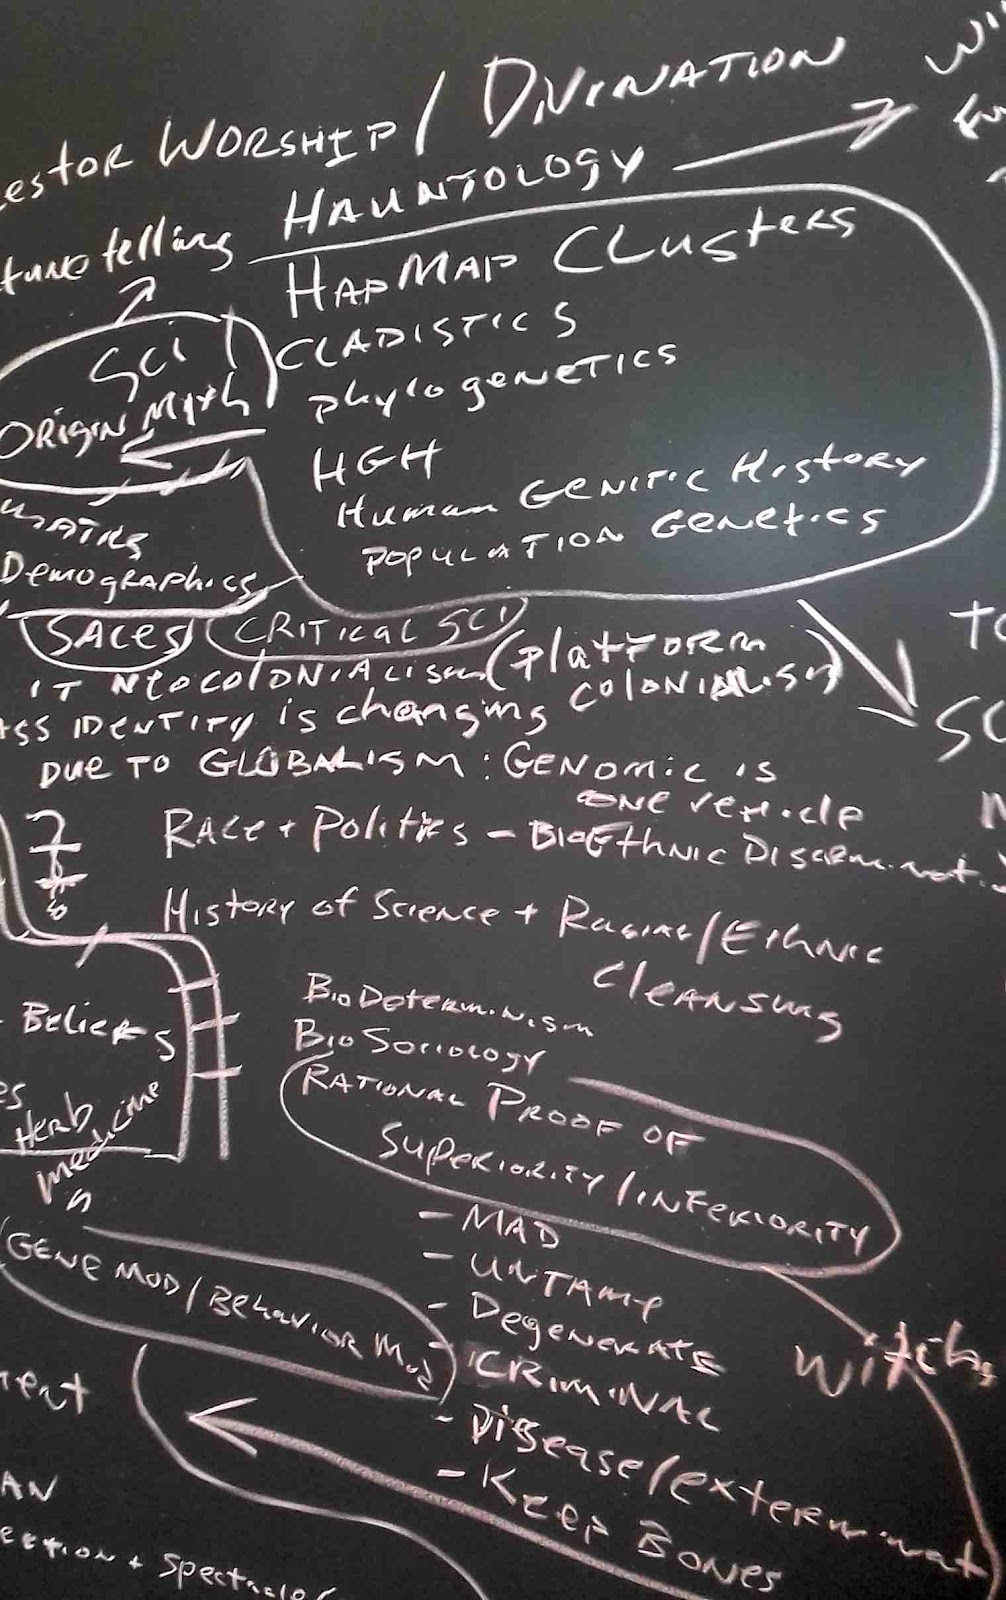 estor WORSHIP / DIVINATION
HAUNTOLOGY
tune telling
HAPMAP CLUSTERS
SCI
CLADISTICS
ORIGIN Myth
phylogenetics
HGH
Human GENETIC HISTORY
POPULATION GENETICS
DEMOGRAPHICS
SALES CRITICAL SCI
IT NEOCOLONIALISM (PLATFORM
COLONIALISM)
ASS IDENTITY is changing
DUE TO GLOBALISM: GENOMIC IS
ONE vehicle
RACE + Politics - BIOEthnic DISCRIMINATI
HISTORY of SCIENCE + RACIAL/ETHNIC
CLEANSING
BIODETERMINISM
BELIEFS
BIOSOCIOLOGY
RATIONAL PROOF OF
SUPERIORITY/INFERIORITY
ES
HERB
medicine
- MAD
- UNTAME
GENE MOD/BEHAVIOR Mod
- Degenerate
- CRIMINAL
witch
- Disease/exterminat
- KEEP BONES
ment
AN
ection + Spectacle/